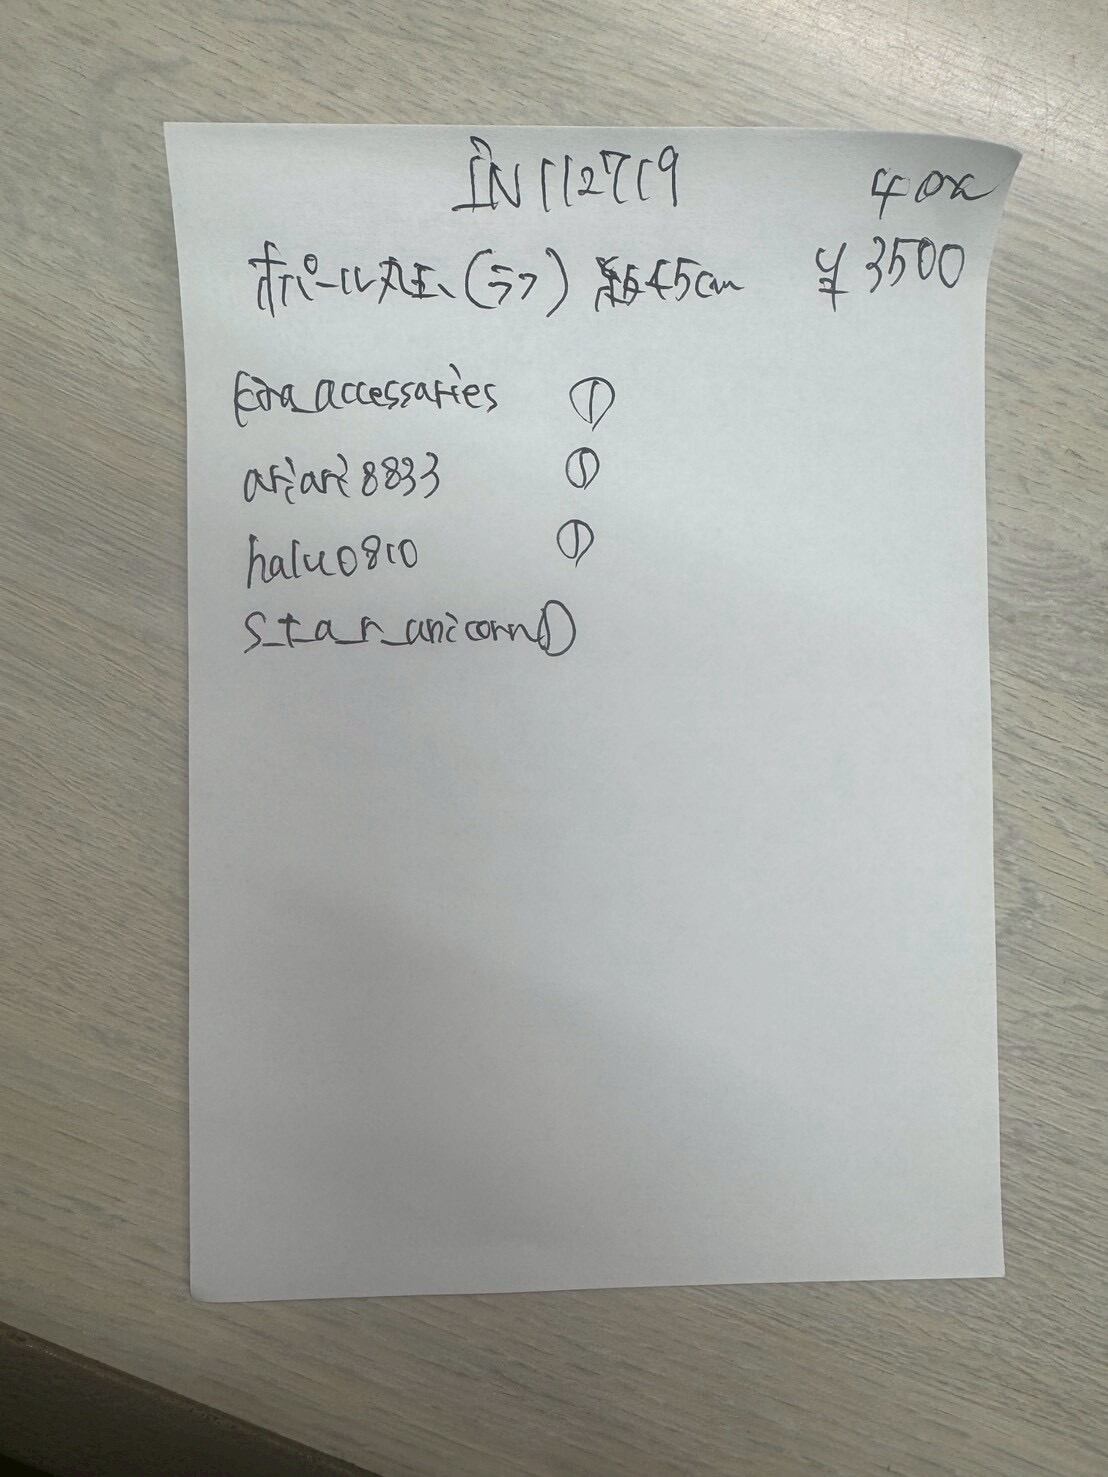 IN112719 40x
オパール丸玉、(ラフ) 約45cm ¥3500
Eira_accessaries ①
ariari8833 ①
halu0810 ①
s_t_a_r_unicorn ①